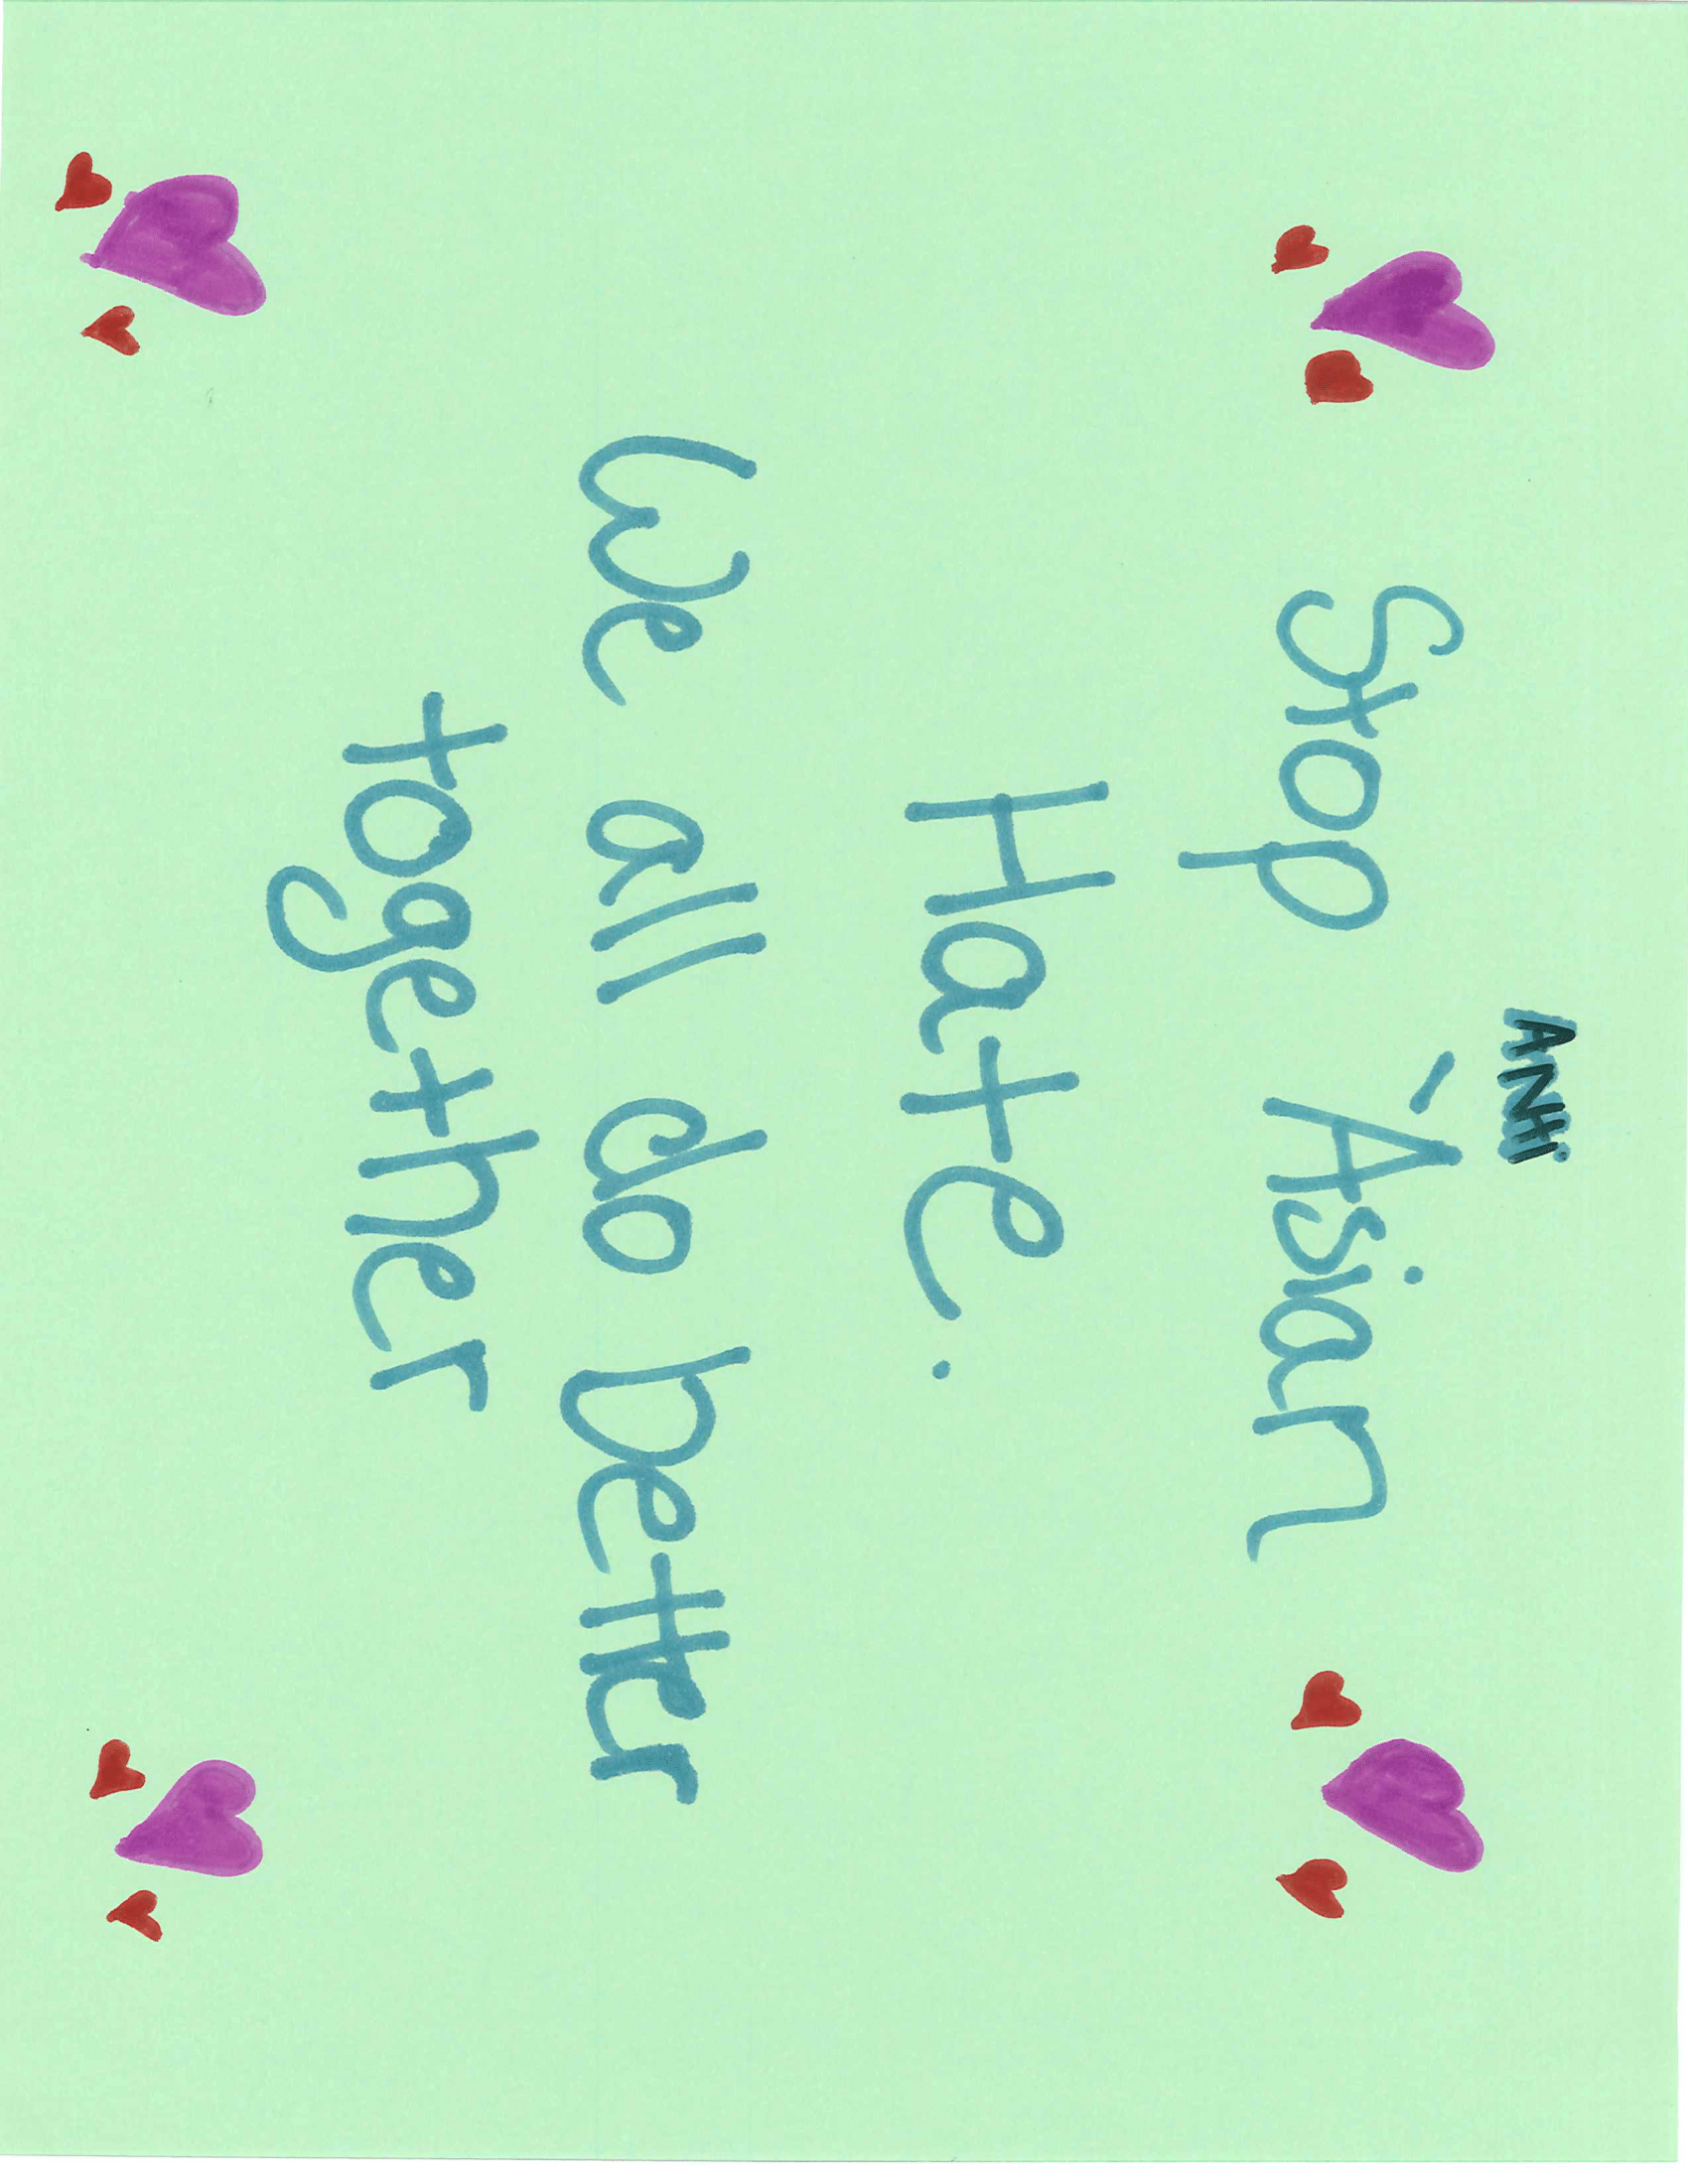 ANti
Stop Asian
Hate.
We all do better
together